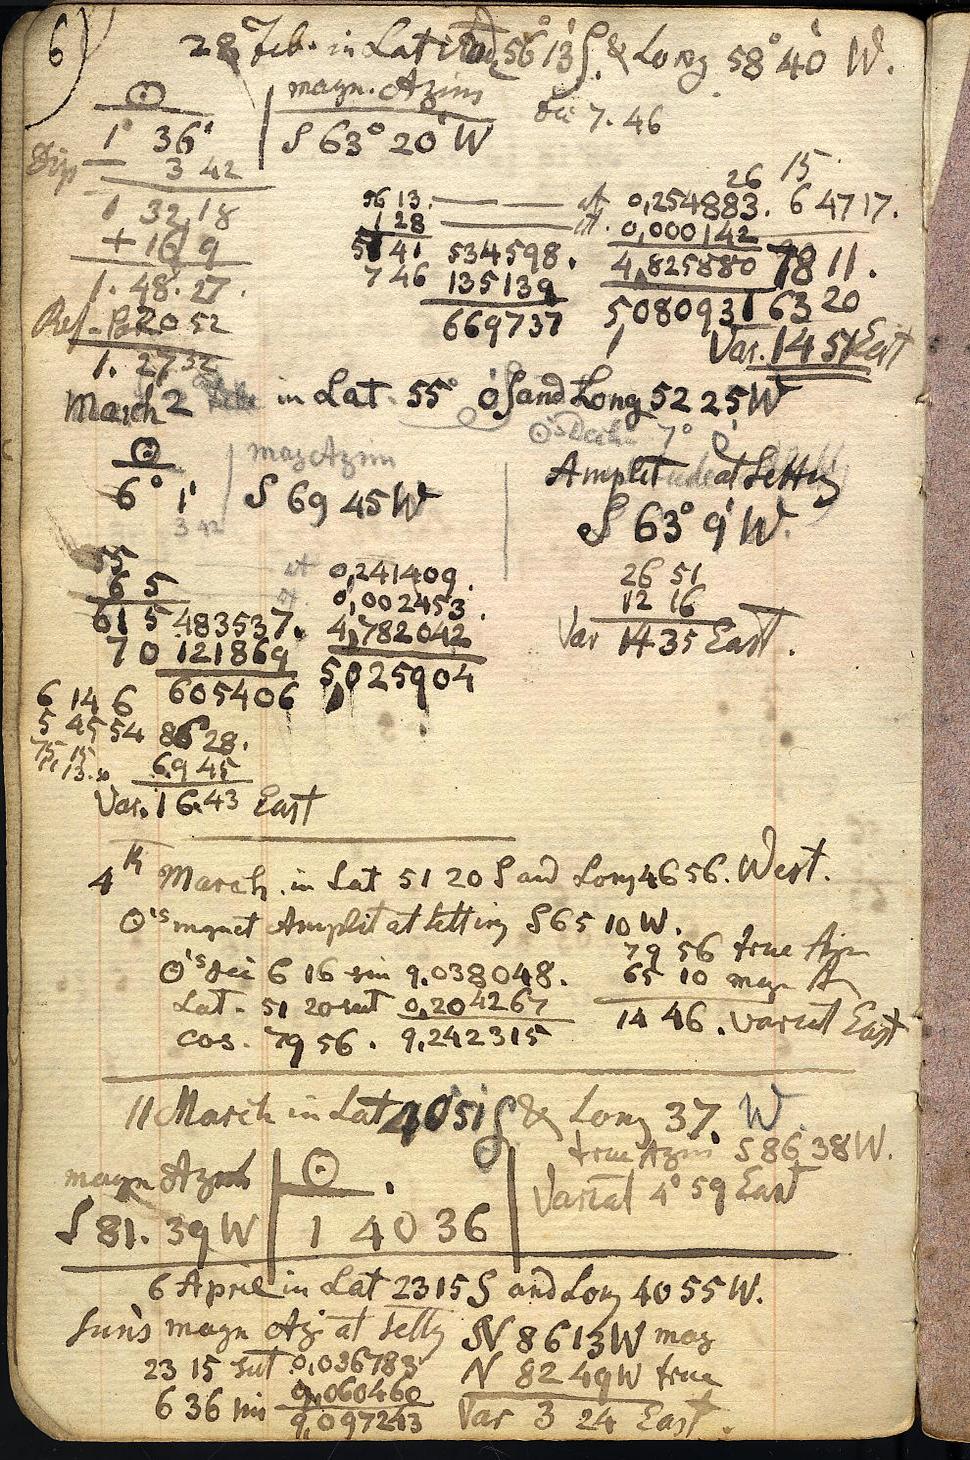 6)
28 Feb. in Latitud 56° 13' S. & Long 58° 40' W.
☉ magn. Azim
1° 36' S 63° 20' W Dec 7. 46
Dip — 3 42
1 32,18
+ 16 9
1. 48. 27.
Ref - Par 20 52
1. 27 32
56 13. — — — ct 0,254883.
1 28 ——— ct. 0,000142
57 41 534598. 4,825880
7 46 135139 5,080931
669737
26 15
64 17 17.
78 11.
63 20
Var. 14 51 East
March 2 in Lat 55° 0' S and Long 52 25 W
☉'s Decln 7° 0'
☉ mag Azim Amplitude at Setting
6° 1' S 69 45 W S 63° 9' W.
3 42
55 ct 0,241409.
6 5 ct 0,002453.
61 5 483537. 4,782042
7 0 121869 5,025904
605406
26 51
12 16
Var 14 35 East.
6 14 6
5 45 54 86 28.
75 15
69 45
Var. 16.43 East
4th March. in Lat 51 20 S and Long 46 56. West.
☉'s magnet Amplit at setting S 65 10 W.
☉'s Dec 6 16 sin 9.038048.
Lat - 51 20 sect 0,204267
cos. 79 56. 9,242315
79 56 true Azim
65 10 mag A
14 46. variat East
11 March in Lat 40 51 S & Long 37 W
true Azim S 86 38 W.
magn Azim ☉ Variat 4° 59 East
S 81. 39 W 1 40 36
6 April in Lat 23 15 S and Long 40 55 W.
Sun's magn Azi at setting N 86 13 W mag
23 15 sect 0,036783 N 82 49 W true
6 36 sin 9,060460 Var 3 24 East.
9,097243